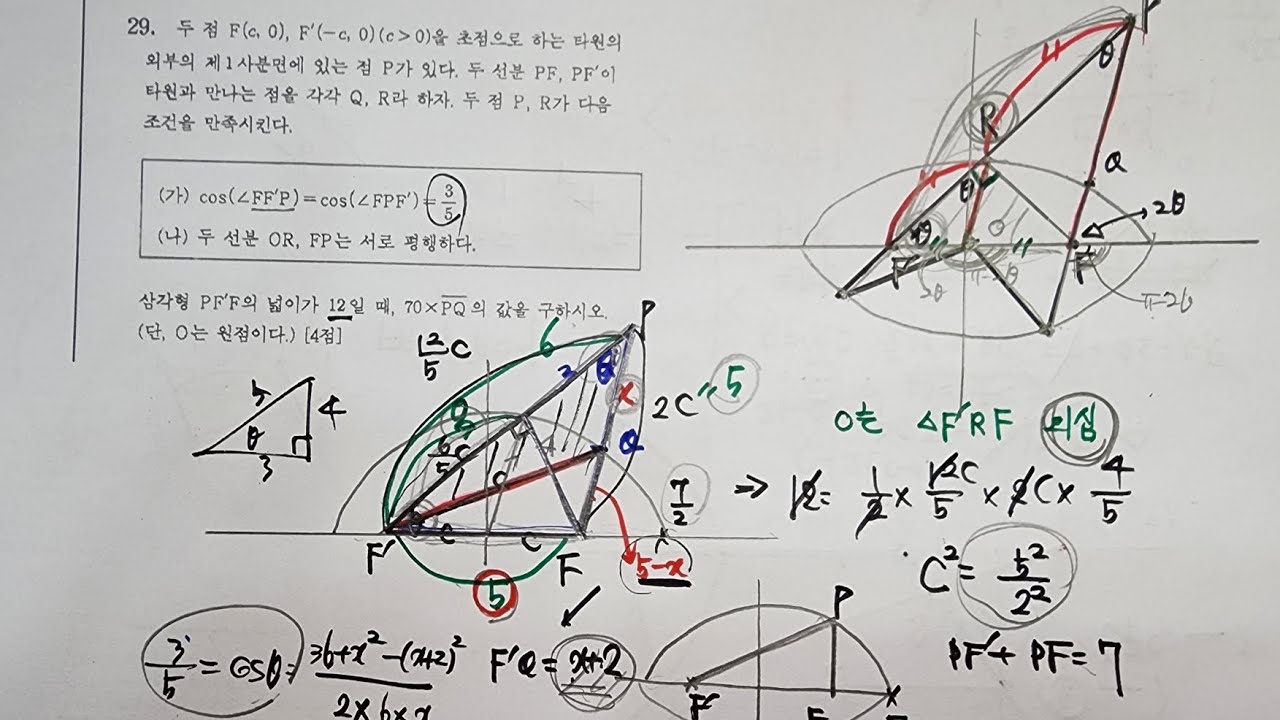 29. 두 점 F(c, 0), F′(−c, 0)(c>0)을 초점으로 하는 타원의
외부의 제1사분면에 있는 점 P가 있다. 두 선분 PF, PF′이
타원과 만나는 점을 각각 Q, R라 하자. 두 점 P, R가 다음
조건을 만족시킨다.
(가) cos(∠FF′P)=cos(∠FPF′)=3/5
(나) 두 선분 OR, FP는 서로 평행하다.
삼각형 PF′F의 넓이가 12일 때, 70×PQ의 값을 구하시오.
(단, O는 원점이다.) [4점]
θ
R
Q
θ
2θ
F′
F
2θ
π-2θ
π-2θ
5
4
θ
3
12/5 C
6
P
θ
x
2C = 5
6/5 C
Q
C
7/2
C
C
F′
F
5
5-x
O는 △F′RF 외심
⇒ 12 = 1/2 × 12C/5 × 2C × 4/5
C² = 5²/2²
PF′ + PF = 7
3/5 = cosθ = 36+x²-(x+2)² / 2×6×x
F′Q = x+2
P
F′
F